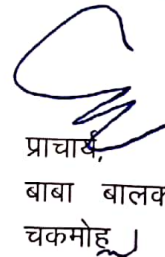 प्राचार्य,
बाबा बालक
चकमोह